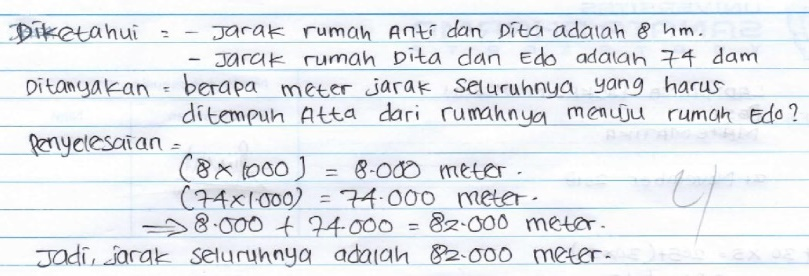 Diketahui = - Jarak rumah Anti dan Dita adalah 8 hm.
- Jarak rumah Dita dan Edo adalah 74 dam
Ditanyakan = berapa meter jarak seluruhnya yang harus
ditempuh Atta dari rumahnya menuju rumah Edo?
Penyelesaian =
(8 x 1000) = 8.000 meter.
(74x1.000) = 74.000 meter.
⇒ 8.000 + 74.000 = 82.000 meter.
Jadi, jarak seluruhnya adalah 82.000 meter.